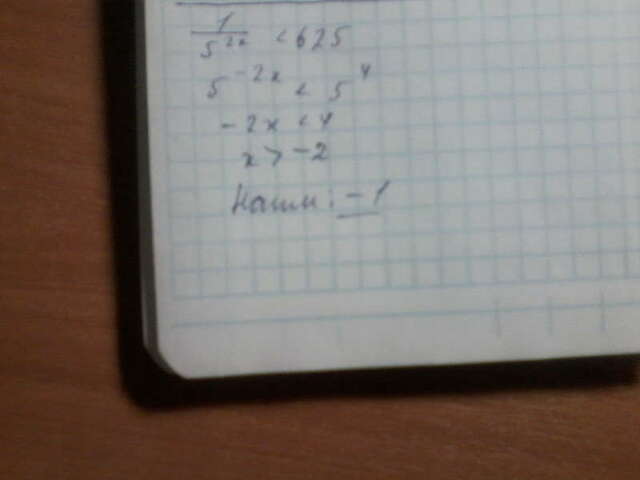 1/5^2x < 625
5^-2x < 5^4
-2x < 4
x > -2
: -1